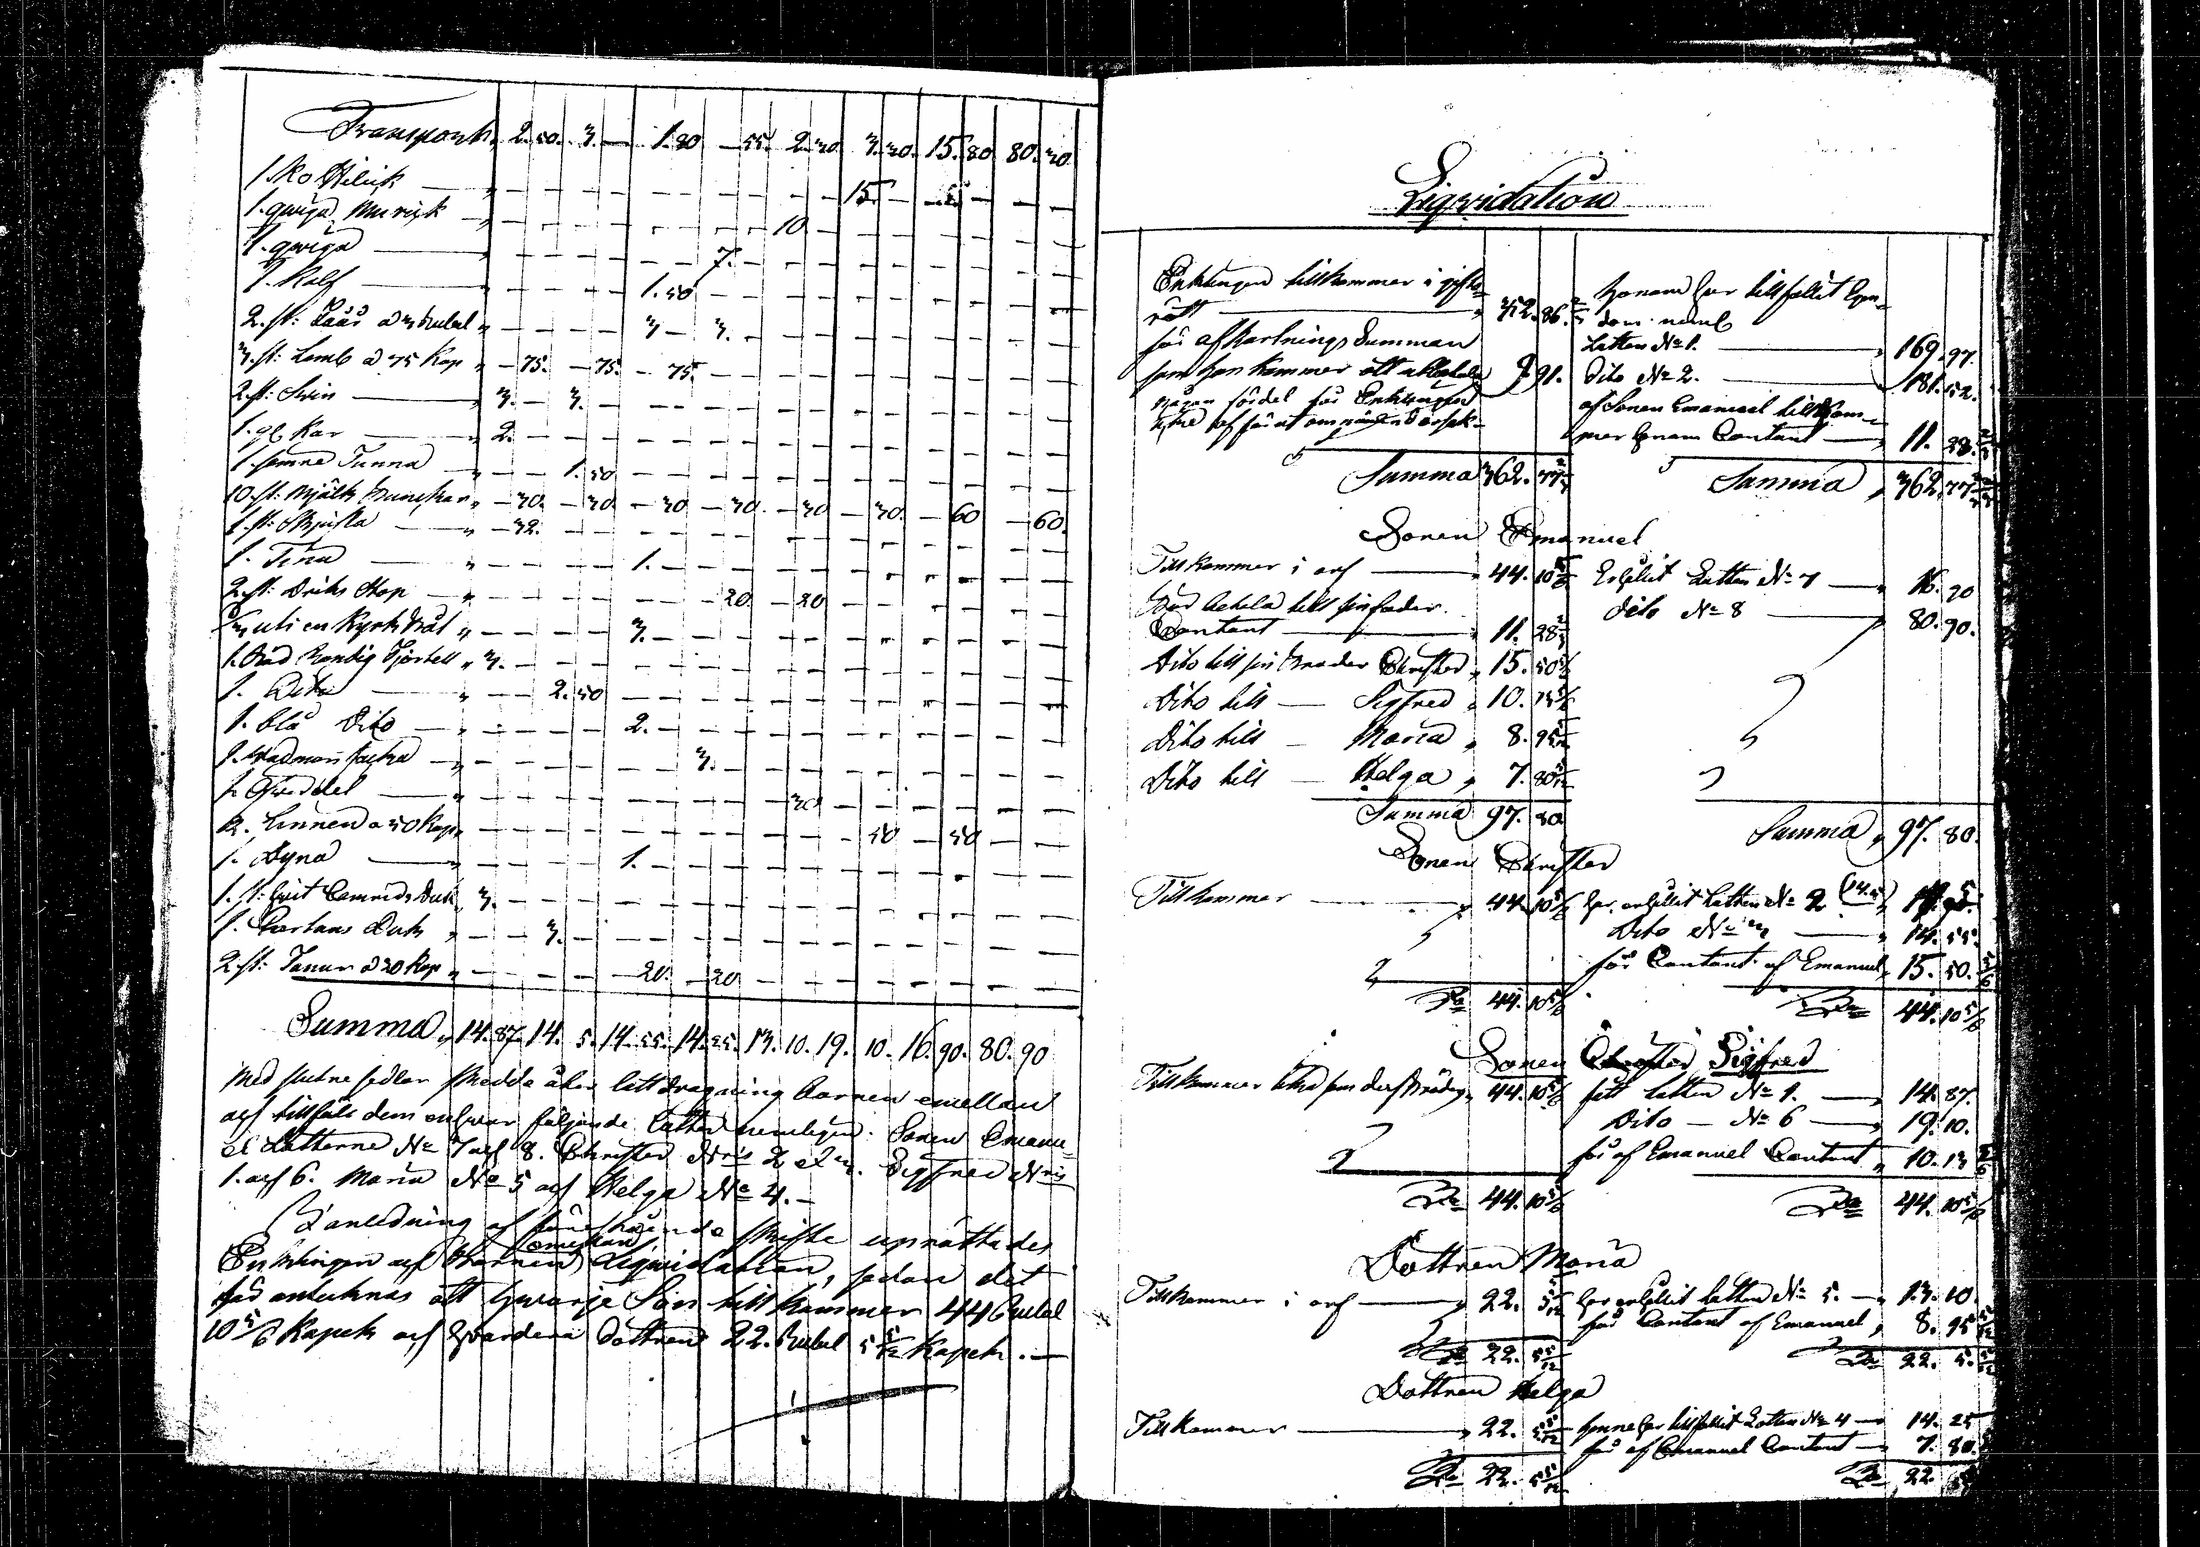 Transport, 2. 50. 3. — 1. 80 — 55. 2. 30. 3. 30. 15. 80 80. 30.
1. Ko — 15. —
1. qwiga Mursik — 10
1. qwiga — 7.
1. Kalf — 1. 50
2. st: Lår a 3 Rubel „ — 3 — 3.
3. st: Lamb a 75 Kop „ — 75. — 75. — 75.
2. st: Swin — 3. — 3.
1. gl. Kar — 2.
1. sämre Tunna — 1. 50
10. st: Mjölk Bunckar „ — 30. — 30 — 30 — 30. — 30 — 30. — 60 — 60.
1. st: Skjutta — „ — 32.
1. Tina — „ 1.
2. st: Driks Stop — „ — 20. — 20
uti en Kyrk Båt „ — 3.
1. Randig Kjortell „ 3.
1. Dito — „ 2. 50
1. blå Dito — 2.
1. Wadmars Jacka — 3.
1. — „ 30
2. Linnen a 50 Kop „ 50 — 50
1. Dyna — „ 1.
1. st: hwit Camrids Duk „ 3.
1. Cartuns Duk „ — 3.
2. st: a 20 Kop „ — 20. — 20
Summa „ 14. 87. 14. 5. 14. 55. 14. 25. 13. 10. 19. 10. 16. 90. 80. 90
Med slutne sedlar skedde åter lottdragning barnen emellan
och tillföll dem enhwar följande Lotter nemligen: Sonen Emanu-
el Lotterne No 7 och 8. Christer Nris 2 et 3. Sigfred Nris
1. och 6. Maria No 5 och Helga No 4. —
I anledning af förestående skifte uprättades
emellan
Enklingen och Barnen Liqvidation, sedan det
får antecknas att hwarje Son tillkommer 44 Rubel
10 5/6 Kopek och hwardera Dottren 22. Rubel 5 5/12 Kopek. —
Liqvidation
Enklingen tillkommer i gifto-
rätt — „ 352. 86.
för afkortnings Summan
som han kommer att allena betala 9 91.
Summa 362. 77 2/3
honom har tillfallit Egen-
dom neml
Lotten No 1. — „ 169. 97.
Dito No 2. — „ 181. 52.
af Sonen Emanuel tillkom-
mer honom Contant — „ 11. 28 2/3
Summa „ 362. 77 2/3
Sonen Emanuel
Tillkommer i arf — „ 44. 10 5/6
Bör betala till sin fader.
Contant — „ 11. 28 2/3
Dito till sin broder Christer „ 15. 50 5/6
Dito till — Sigfred „ 10. 13 5/6
Dito till — Maria „ 8. 95 5/12
Dito till — Helga „ 7. 80 5/12
Summa 97. 80
Erhållit Lotten No 7 — „ 16. 90
Dito No 8 — „ 80. 90.
Summa „ 97. 80.
Sonen Christer
Tillkommer — „ 44. 10 5/6
Sa 44. 10 5/6
har erhållit Lotten No 2 (14. 5) „ 14. 5.
Dito No 3 — „ 14. 55.
får Contant af Emanuel „ 15. 50. 5/6
Sa 44. 10 5/6
Sonen Christer Sigfred
Tillkommer „ 44. 10 5/6
Sa 44. 10 5/6
fått Lotten No 1. — „ 14. 87
Dito — No 6 — „ 19. 10.
får af Emanuel Contant „ 10. 13 5/6
Sa 44. 10 5/6
Dottren Maria
Tillkommer i arf — „ 22. 5 5/12
Sa 22. 5 5/12
har erhållit Lotten No 5. — „ 13. 10.
får Contant af Emanuel „ 8. 95 5/12
Sa 22. 5. 5/12
Dottren Helga
Tillkommer — „ 22. 5 5/12
Sa 22. 5 5/12
henne har tillfallit Lotten No 4 — 14. 25
får af Emanuel Contant — 7. 80.
Sa 22